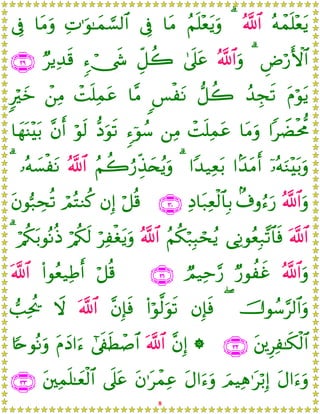 يَعْلَمْهُ ٱللَّهُ ۗ وَيَعْلَمُ مَا فِى ٱلسَّمَـٰوَٰتِ وَمَا فِى
ٱلْأَرْضِ ۗ وَٱللَّهُ عَلَىٰ كُلِّ شَىْءٍ قَدِيرٌ ﴿٢٩﴾
يَوْمَ تَجِدُ كُلُّ نَفْسٍ مَّا عَمِلَتْ مِنْ خَيْرٍ
مُّحْضَرًا وَمَا عَمِلَتْ مِن سُوٓءٍ تَوَدُّ لَوْ أَنَّ بَيْنَهَا
وَبَيْنَهُۥٓ أَمَدًۢا بَعِيدًا ۗ وَيُحَذِّرُكُمُ ٱللَّهُ نَفْسَهُۥ ۗ
وَٱللَّهُ رَءُوفٌۢ بِٱلْعِبَادِ ﴿٣٠﴾ قُلْ إِن كُنتُمْ تُحِبُّونَ
ٱللَّهَ فَٱتَّبِعُونِى يُحْبِبْكُمُ ٱللَّهُ وَيَغْفِرْ لَكُمْ ذُنُوبَكُمْ ۗ
وَٱللَّهُ غَفُورٌ رَّحِيمٌ ﴿٣١﴾ قُلْ أَطِيعُوا۟ ٱللَّهَ
وَٱلرَّسُولَ ۖ فَإِن تَوَلَّوْا۟ فَإِنَّ ٱللَّهَ لَا يُحِبُّ
ٱلْكَـٰفِرِينَ ﴿٣٢﴾ ۞ إِنَّ ٱللَّهَ ٱصْطَفَىٰٓ ءَادَمَ وَنُوحًا
وَءَالَ إِبْرَٰهِيمَ وَءَالَ عِمْرَٰنَ عَلَى ٱلْعَـٰلَمِينَ ﴿٣٣﴾